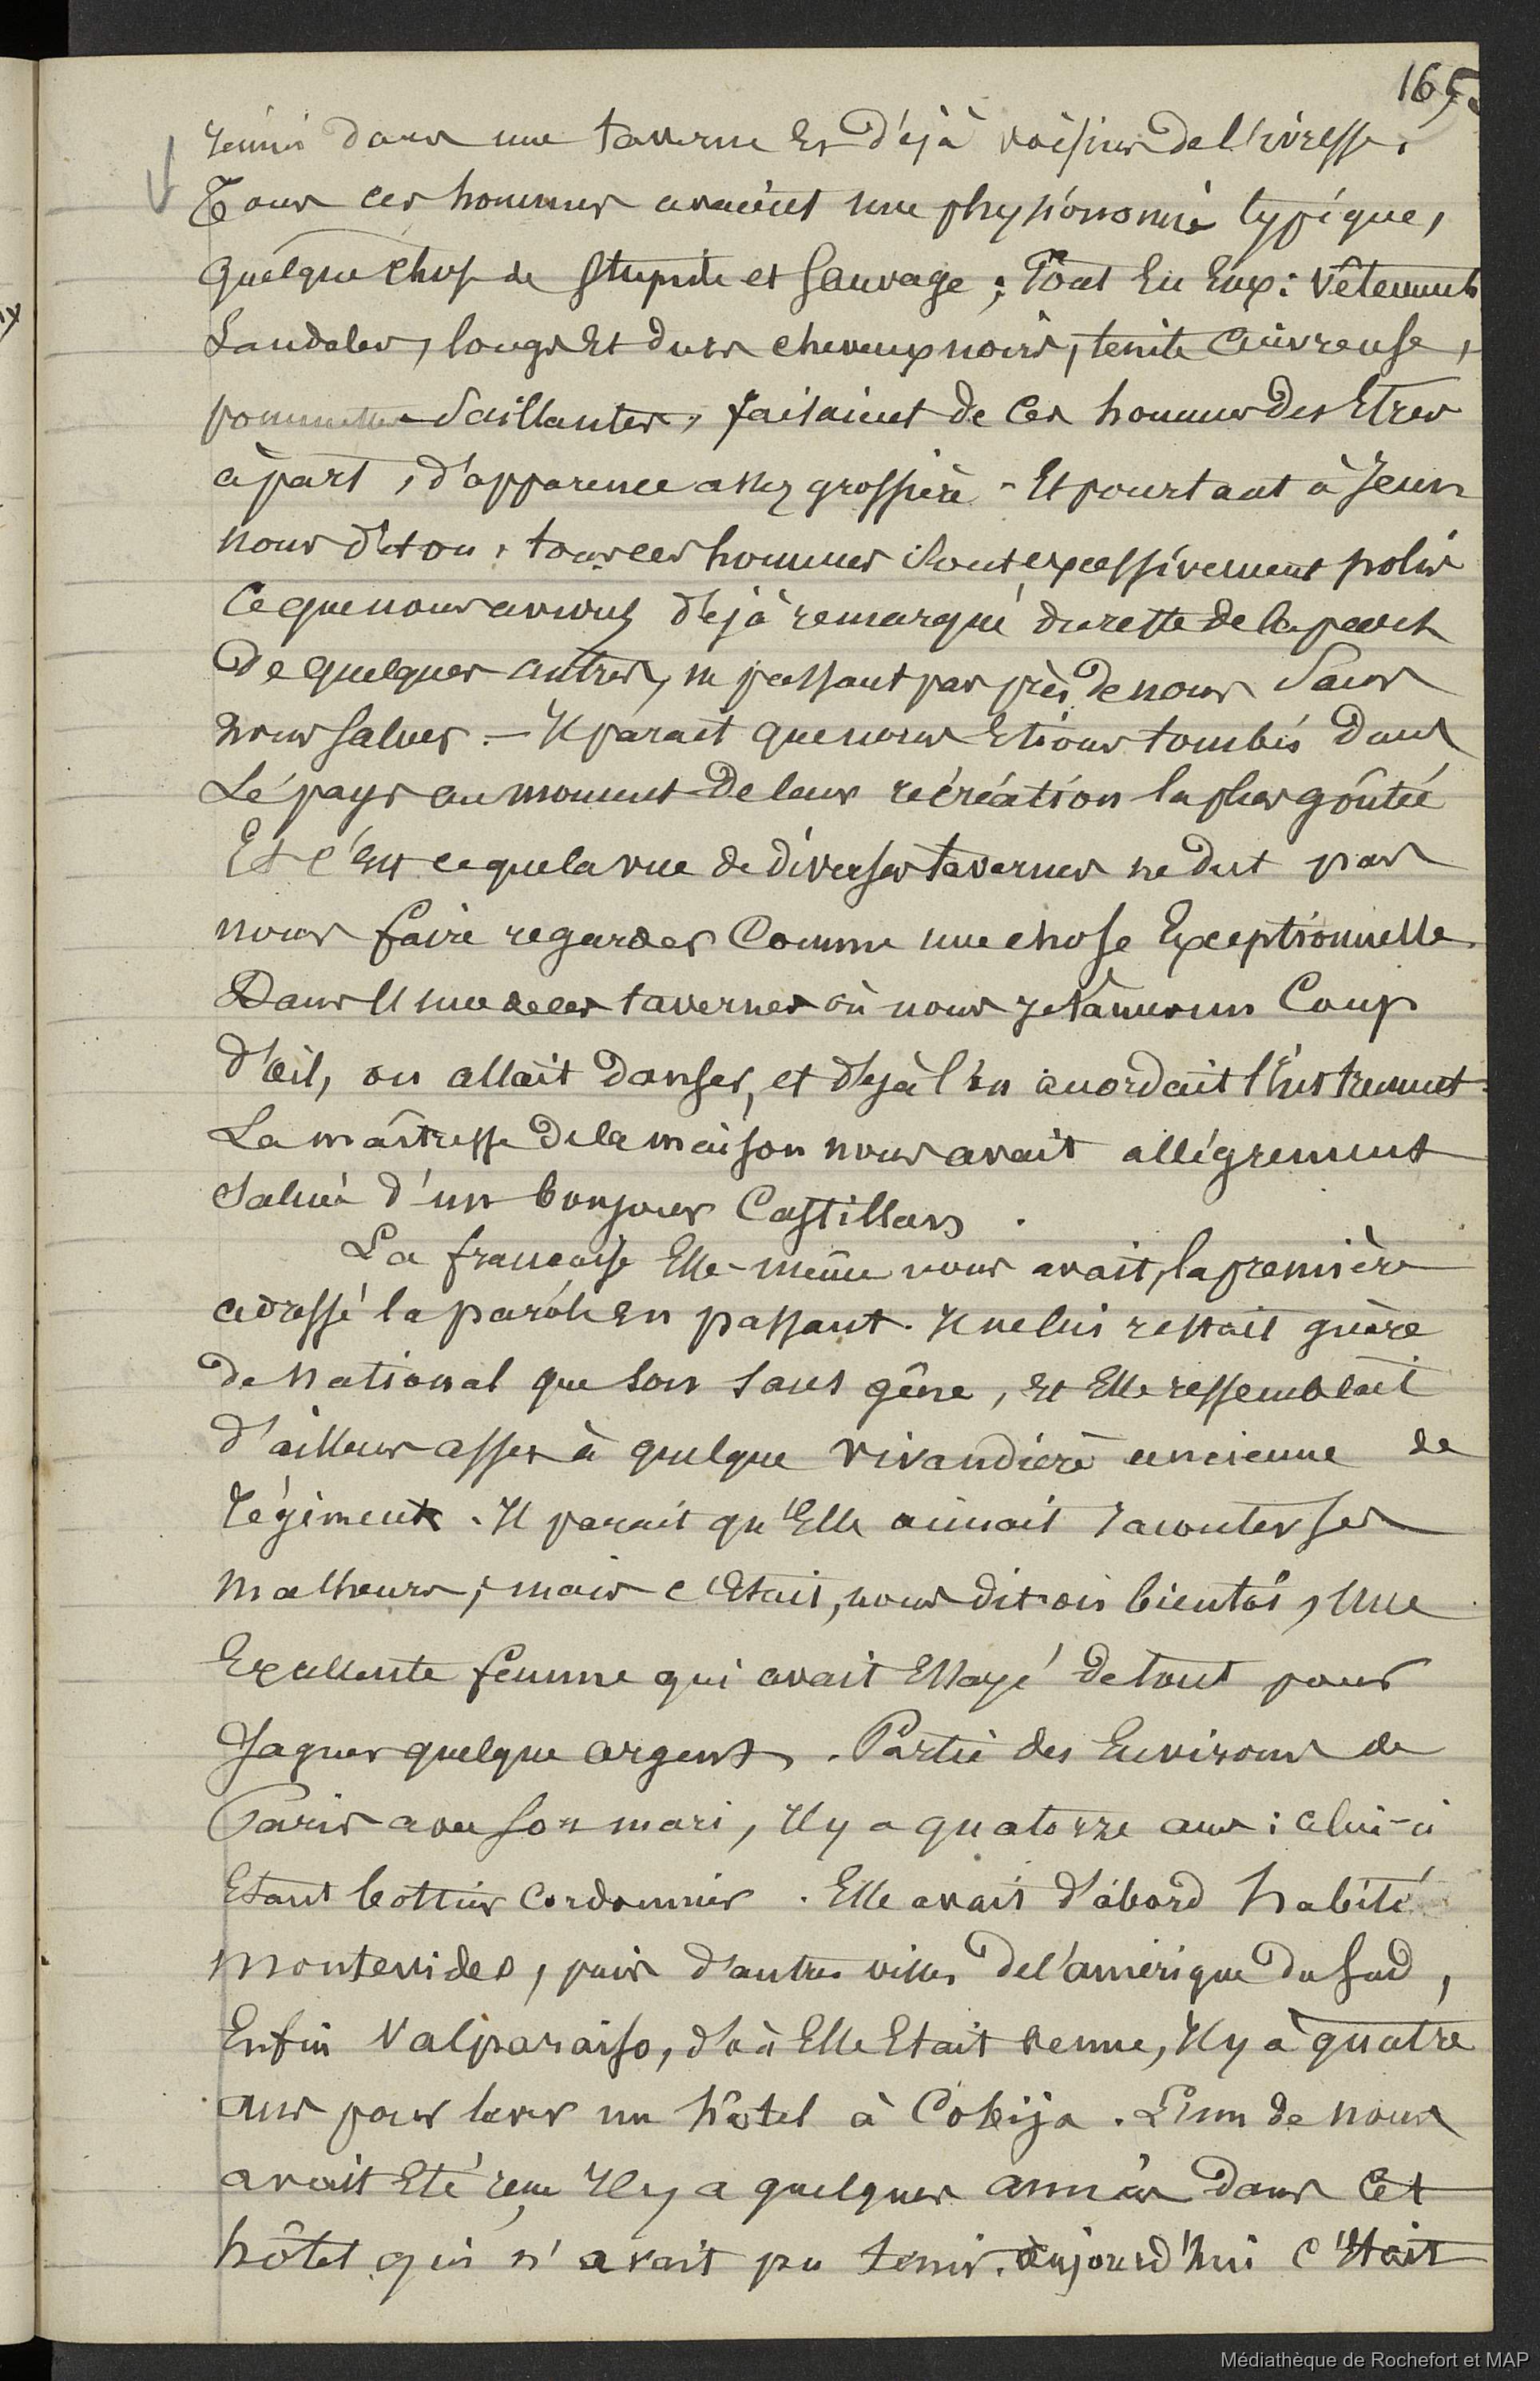 165.
réunis dans une taverne et déjà voisins de l'ivresse.
Tous ces hommes avaient une physionomie typique,
quelque chose de stupide et sauvage ; Tout en eux : vêtements
Sandales, longs et durs cheveux noirs, teinte cuivreuse,
pommettes saillantes, faisaient de ces hommes des êtres
à part, d'apparence assez grossière - Et pourtant à jeun
nous dit on, tous ces hommes sont excessivement polis
Ce que nous avions déjà remarqué du reste de la part
de quelques autres, ne passant pas près de nous sans
nous saluer. - Il parait que nous étions tombés dans
Le pays au moment de leur récréation la plus goûtée
Et c'est ce que la vue de diverses tavernes ne dut pas
nous faire regarder comme une chose Exceptionnelle.
Dans l'une de ces tavernes où nous jetâmes un Coup
d'œil, on allait danser, et déjà l'on accordait l'instrument.
La maîtresse de la maison nous avait allégrement
salué d'un bonjour Castillan.
La française Elle-même nous avait, la première
adressé la parole en passant. Il ne lui restait guère
de national que son sans gêne, et Elle ressemblait
d'ailleurs assez à quelque vivandière ancienne de
régiment. Il parait qu'Elle aimait raconter ses
malheurs ; mais c'Etait, nous dit-on bientôt, Une
Excellente femme qui avait Essayé de tout pour
gagner quelque argent. Partie des Environs de
Paris avec son mari, Il y a quatorze ans : celui-ci
Etant bottier cordonnier. Elle avait d'abord habité
Montevideo, puis d'autres villes de l'amérique du Sud,
Enfin Valparaiso, d'où Elle Etait venue, Il y à quatre
ans pour lever un hôtel à Cobija. L'un de nous
avait Eté reçu Il y a quelques années dans cet
hôtel qui n'avait pu tenir. aujourd'hui c'Etait
Médiathèque de Rochefort et MAP